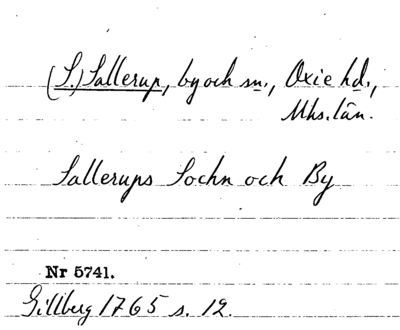 (S.) Sallerup, by och sn., Oxie hd.,
Mhs. län.
Sallerups Sochn och By
Nr 5741.
Gillberg 1765 s. 12.